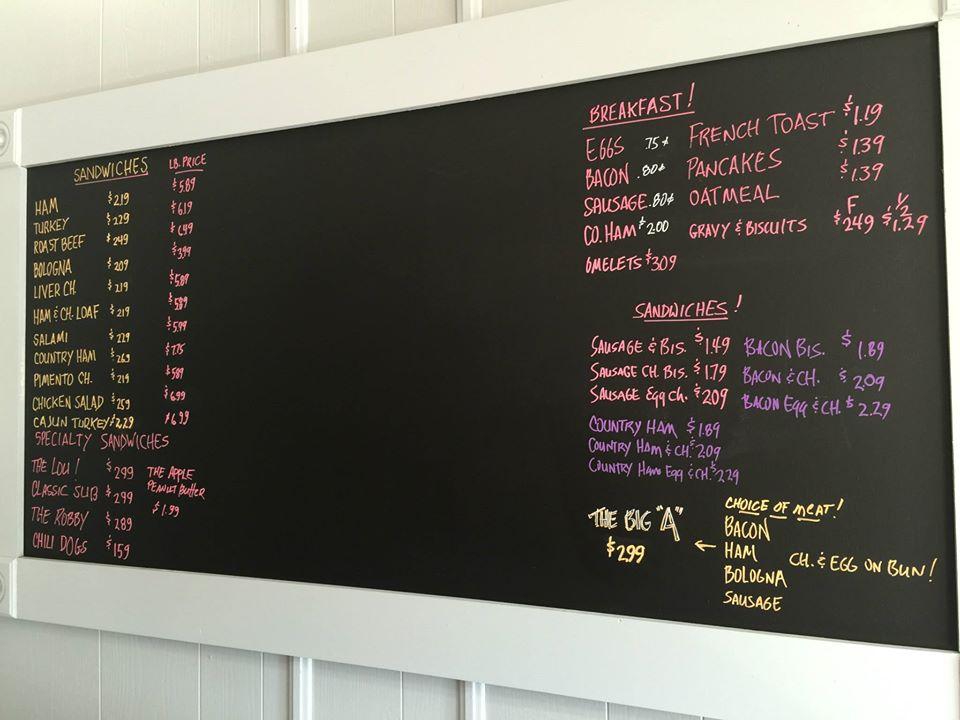 SANDWICHES LB. PRICE
HAM $2.19 $5.89
TURKEY $2.29 $6.19
ROAST BEEF $2.49 $6.49
BOLOGNA $2.09 $3.99
LIVER CH. $2.19 $5.89
HAM & CH. LOAF $2.19 $5.89
SALAMI $2.29 $5.99
COUNTRY HAM $2.69 $7.75
PIMENTO CH. $2.19 $5.89
CHICKEN SALAD $2.59 $6.99
CAJUN TURKEY $2.29 $6.99
SPECIALTY SANDWICHES
THE LOU! $2.99
CLASSIC SUB $2.99
THE ROBBY $2.89
CHILI DOGS $1.59
THE APPLE
PEANUT BUTTER
$1.99
BREAKFAST!
EGGS .75¢ FRENCH TOAST $1.19
BACON .80¢ PANCAKES $1.39
SAUSAGE .80¢ OATMEAL $1.39
F 1/2
CO. HAM $2.00 GRAVY & BISCUITS $2.49 $1.29
OMELETS $3.09
SANDWICHES!
SAUSAGE & BIS. $1.49 BACON BIS. $1.89
SAUSAGE CH. BIS. $1.79 BACON & CH. $2.09
SAUSAGE Egg CH. $2.09 BACON Egg & CH. $2.29
COUNTRY HAM $1.89
COUNTRY HAM & CH. $2.09
COUNTRY HAM EGG & CH. $2.29
THE BIG "A"
$2.99
←
CHOICE OF MEAT!
BACON
HAM
BOLOGNA
SAUSAGE
CH. & EGG ON BUN!